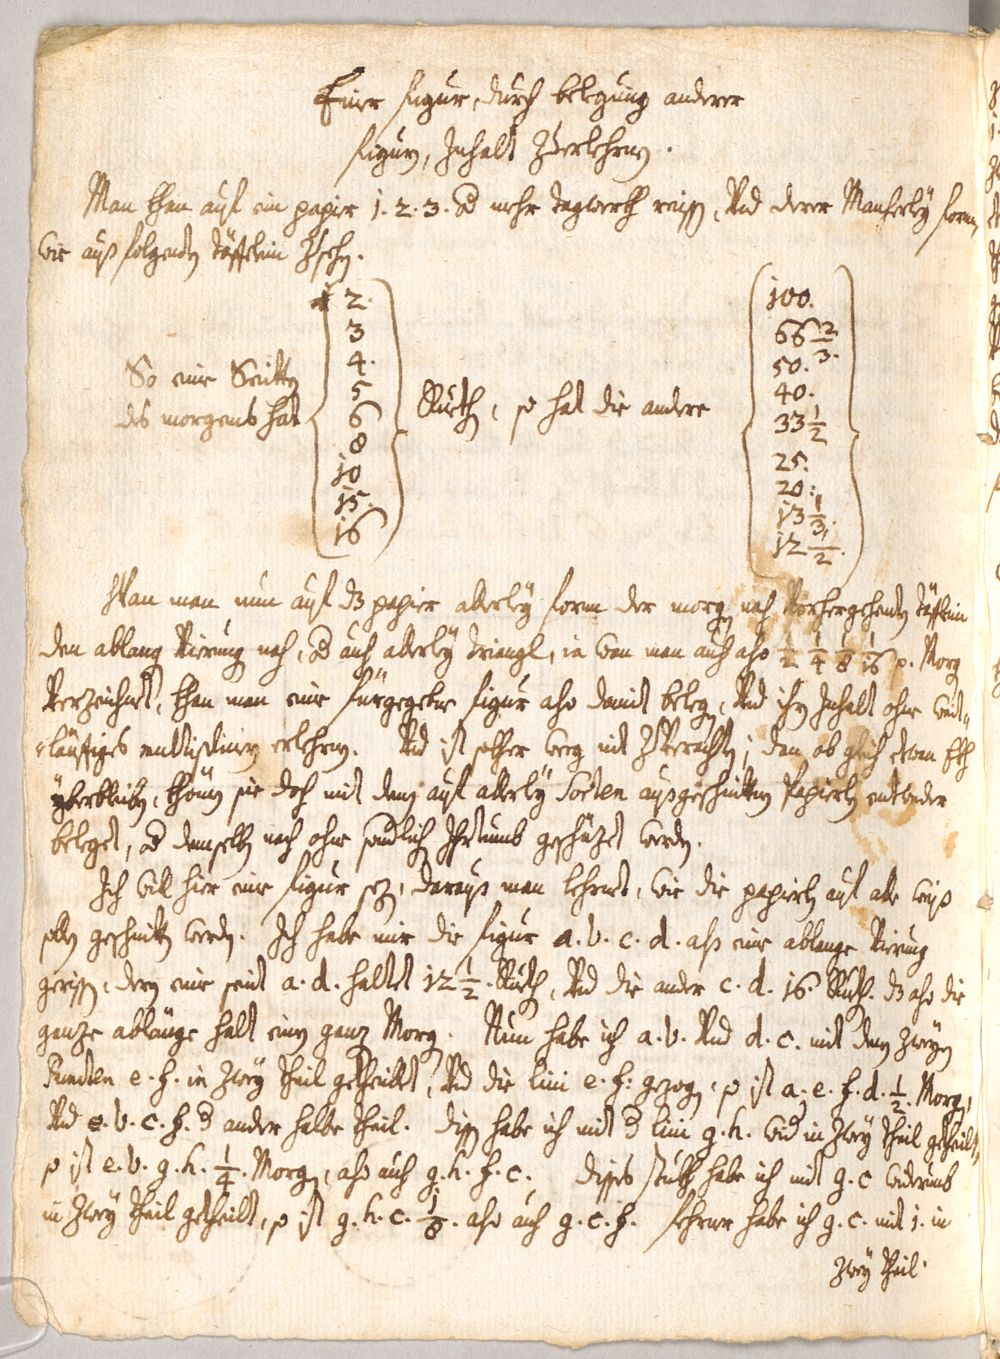 Einer figur, durch belegung anderer
figurn, Inhalt Zuerlehrnen.
Man khan auf ein papir 1. 2. 3. od mehr tagwerkh reissen, Und derer Mancherley form,
wie auß folgenden täffelein Zusehen.
So eine Seitten
des morgens hat
2.
3
4.
5
6
8
10
15.
16
Rueth, so hat die andere
100.
66 2/3.
50.
40.
33 1/2
25.
20:
13 1/3.
12 1/2.
Wan man nun auf dz papier allerley form der morgen nach Vorhergehenden täffelein
den ablang Vierung nach, od auch allerley triangl, in wen man auch also 1/2 1/4 1/8 1/16 p. Morg
Verzeichnet, khan man eine fürgegebne figur also damit belegen, Und ihren Inhalt ohne weit-
läuffiges erlehrnen. Und ist solher weg nit Zuverachten; dan ob gleich etwan Ekh
überbleiben, khönen sie doch mit denen auf allerley Sorten außgeschnitten Papierlen entweder
beleget, od demselben nach ohne sondlich Irthumb geschäzet werden.
Ich will hier eine figur sezen, darauß man lehrnet, wie die papierlen auf alle weiß
sollen geschnitten werden. Ich habe mir die figur a. b. c. d. alß eine ablange Vierung
gerissen, deren eine seite a. d. haltet 12 1/2. Rueth, Und die ander c. d. 16. Rueth. dz also die
ganze ablänge halt einen ganzen Morgen. Nun habe ich a. b. Und d. c. mit denen Zweyen
Puncten e. f. in Zwey theil getheillet, Und die lini e. f. gezogen, so ist a. e. f. d. 1/2. Morgen,
Und e. b. c. f. d ander halbe theil. disen habe ich mit d lini g. h. wid in Zwey theil getheilt,
so ist e. b. g. h. 1/4. Morgen, also auch g. h. f. c. Dises stükh habe ich mit g. c widerumb
in Zwey theil getheilt, so ist g. h. c. 1/8. also auch g. c. f. ferner habe ich g. c. mit i. in
Zwey theil.